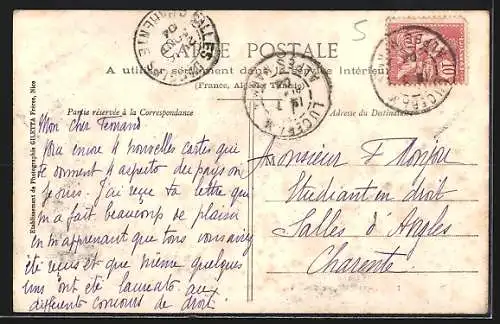 5
CARTE POSTALE
A utiliser seulement dans le Service Intérieur
(France, Algérie, Tunisie)
SALLES
CHARENTE
04
LUCERAM
LUCERAM
10
Partie réservée à la Correspondance
Adresse du Destinataire
Etablissement de Photographie GILETTA Frères, Nice
Mon cher Fernand
encore 4 nouvelles cartes qui
te donnent 4 aspects du pays ou
je suis. J'ai reçu ta lettre qui
m'a fait beaucoup de plaisir
en m'apprenant que tous vous aviez
été reçus et que même quelques
uns ont été laureats aux
différents concours de droit.
Monsieur F
Etudiant en droit
Salles d'Angles
Charente